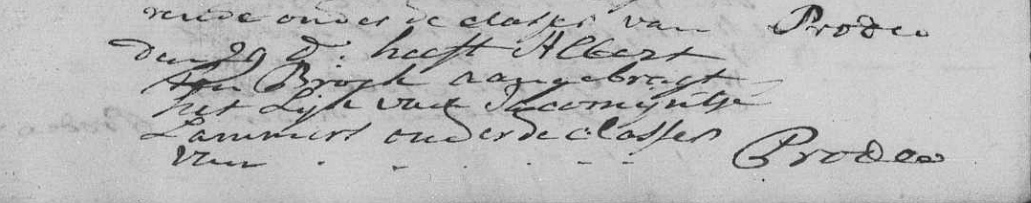 rende onder de classes van Prodeo
den 29 d: heeft Albert
ten Broek aangebragt
het Lijk van Jacomijntje
Lammers onder de classes
van . . . . - - Prodeo